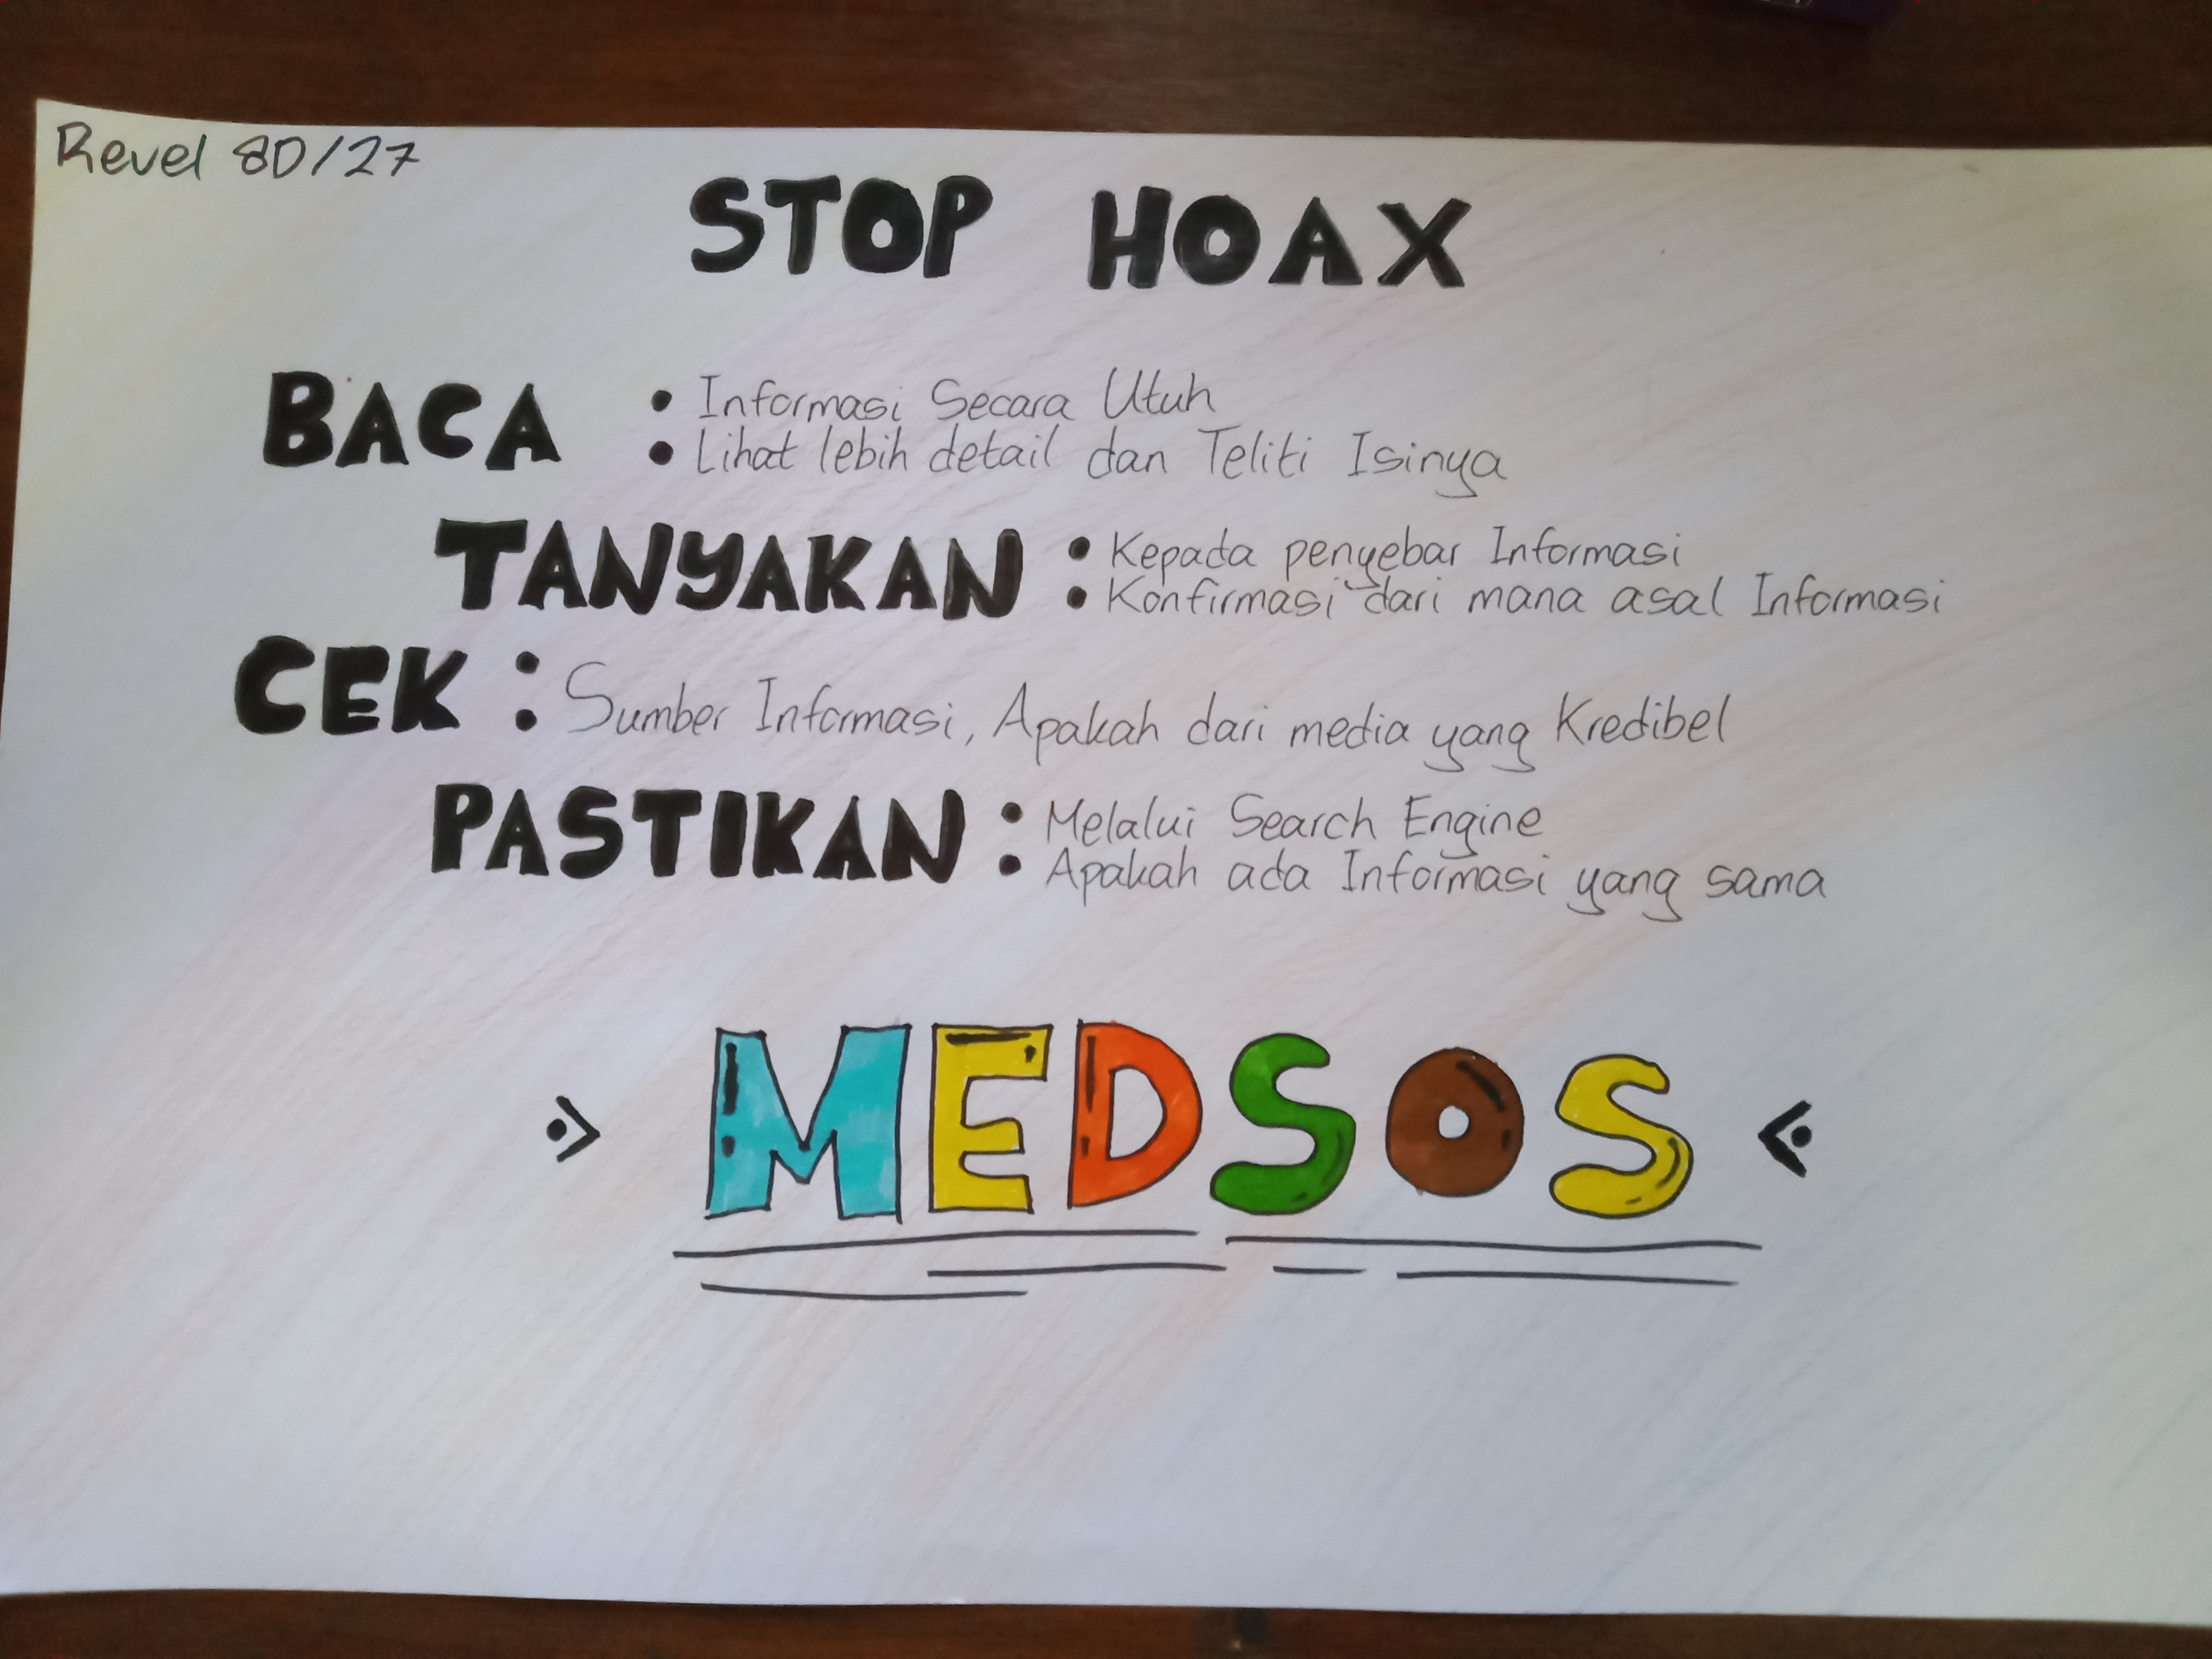 Revel 8D/27
STOP HOAX
BACA : • Informasi Secara Utuh
• Lihat lebih detail dan Teliti Isinya
TANYAKAN : Kepada penyebar Informasi
Konfirmasi dari mana asal Informasi
CEK : Sumber Informasi, Apakah dari media yang Kredibel
PASTIKAN : Melalui Search Engine
Apakah ada Informasi yang sama
MEDSOS